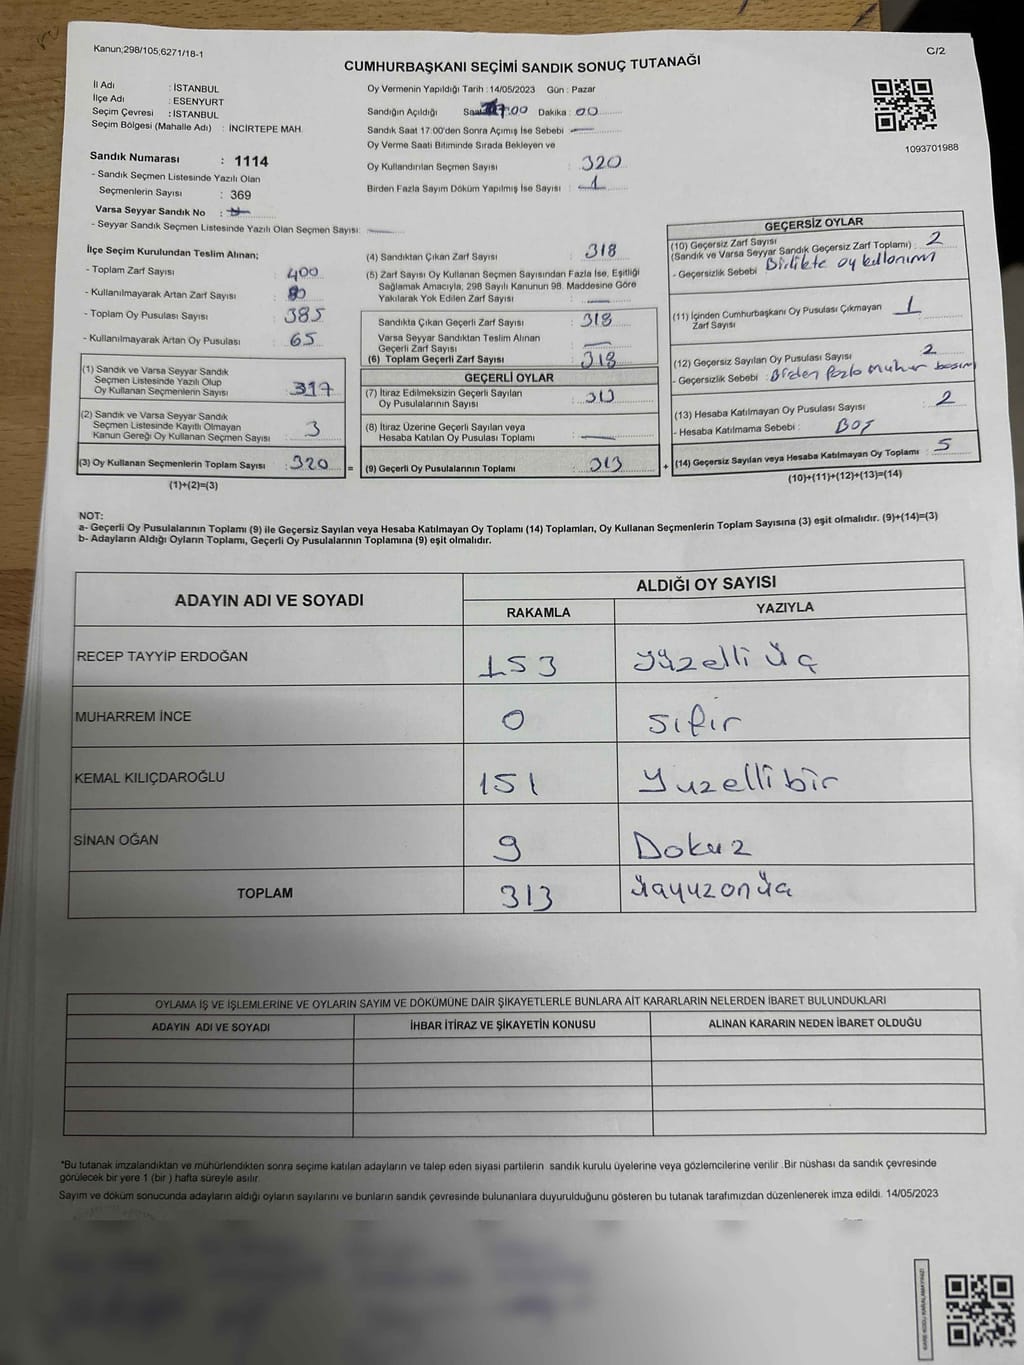 Kanun;298/105,6271/18-1
C/2
CUMHURBAŞKANI SEÇİMİ SANDIK SONUÇ TUTANAĞI
İl Adı : İSTANBUL
İlçe Adı : ESENYURT
Seçim Çevresi : İSTANBUL
Seçim Bölgesi (Mahalle Adı) : İNCİRTEPE MAH.
Oy Vermenin Yapıldığı Tarih : 14/05/2023 Gün : Pazar
Sandığın Açıldığı Saat 17:00 Dakika : 00
Sandık Saat 17:00'den Sonra Açımış İse Sebebi —
Oy Verme Saati Bitiminde Sırada Bekleyen ve
Oy Kullandırılan Seçmen Sayısı : 320
Birden Fazla Sayım Döküm Yapılmış İse Sayısı : 1
1093701988
Sandık Numarası : 1114
- Sandık Seçmen Listesinde Yazılı Olan
Seçmenlerin Sayısı : 369
Varsa Seyyar Sandık No :
- Seyyar Sandık Seçmen Listesinde Yazılı Olan Seçmen Sayısı: —
İlçe Seçim Kurulundan Teslim Alınan;
- Toplam Zarf Sayısı : 400
- Kullanılmayarak Artan Zarf Sayısı : 80
- Toplam Oy Pusulası Sayısı : 385
- Kullanılmayarak Artan Oy Pusulası : 65
(1) Sandık ve Varsa Seyyar Sandık
Seçmen Listesinde Yazılı Olup
Oy Kullanan Seçmenlerin Sayısı : 317
(2) Sandık ve Varsa Seyyar Sandık
Seçmen Listesinde Kayıtlı Olmayan
Kanun Gereği Oy Kullanan Seçmen Sayısı : 3
(3) Oy Kullanan Seçmenlerin Toplam Sayısı : 320 =
(1)+(2)=(3)
(4) Sandıktan Çıkan Zarf Sayısı : 318
(5) Zarf Sayısı Oy Kullanan Seçmen Sayısından Fazla İse, Eşitliği
Sağlamak Amacıyla, 298 Sayılı Kanunun 98. Maddesine Göre
Yakılarak Yok Edilen Zarf Sayısı : —
Sandıkta Çıkan Geçerli Zarf Sayısı : 318
Varsa Seyyar Sandıktan Teslim Alınan
Geçerli Zarf Sayısı : —
(6) Toplam Geçerli Zarf Sayısı : 318
GEÇERLİ OYLAR
(7) İtiraz Edilmeksizin Geçerli Sayılan
Oy Pusulalarının Sayısı : 313
(8) İtiraz Üzerine Geçerli Sayılan veya
Hesaba Katılan Oy Pusulası Toplamı : —
(9) Geçerli Oy Pusulalarının Toplamı : 313 +
GEÇERSİZ OYLAR
(10) Geçersiz Zarf Sayısı
(Sandık ve Varsa Seyyar Sandık Geçersiz Zarf Toplamı) : 2
- Geçersizlik Sebebi : Birlikte oy kullanımı
(11) İçinden Cumhurbaşkanı Oy Pusulası Çıkmayan
Zarf Sayısı : 1
(12) Geçersiz Sayılan Oy Pusulası Sayısı : 2
- Geçersizlik Sebebi : Birden fazla muhur basım
(13) Hesaba Katılmayan Oy Pusulası Sayısı : 2
- Hesaba Katılmama Sebebi : BOŞ
(14) Geçersiz Sayılan veya Hesaba Katılmayan Oy Toplamı : 5
(10)+(11)+(12)+(13)=(14)
NOT:
a- Geçerli Oy Pusulalarının Toplamı (9) ile Geçersiz Sayılan veya Hesaba Katılmayan Oy Toplamı (14) Toplamları, Oy Kullanan Seçmenlerin Toplam Sayısına (3) eşit olmalıdır. (9)+(14)=(3)
b- Adayların Aldığı Oyların Toplamı, Geçerli Oy Pusulalarının Toplamına (9) eşit olmalıdır.
ADAYIN ADI VE SOYADI
ALDIĞI OY SAYISI
RAKAMLA YAZIYLA
RECEP TAYYİP ERDOĞAN 153 yüzelli üç
MUHARREM İNCE 0 sıfır
KEMAL KILIÇDAROĞLU 151 Yuzelli bir
SİNAN OĞAN 9 Dokuz
TOPLAM 313 üçyuzonüç
OYLAMA İŞ VE İŞLEMLERİNE VE OYLARIN SAYIM VE DÖKÜMÜNE DAİR ŞİKAYETLERLE BUNLARA AİT KARARLARIN NELERDEN İBARET BULUNDUKLARI
ADAYIN ADI VE SOYADI İHBAR İTİRAZ VE ŞİKAYETİN KONUSU ALINAN KARARIN NEDEN İBARET OLDUĞU
*Bu tutanak imzalandıktan ve mühürlendikten sonra seçime katılan adayların ve talep eden siyasi partilerin sandık kurulu üyelerine veya gözlemcilerine verilir .Bir nüshası da sandık çevresinde
görülecek bir yere 1 (bir ) hafta süreyle asılır.
Sayım ve döküm sonucunda adayların aldığı oyların sayılarını ve bunların sandık çevresinde bulunanlara duyurulduğunu gösteren bu tutanak tarafımızdan düzenlenerek imza edildi. 14/05/2023
KARE KODU KARALAMAYINIZ!